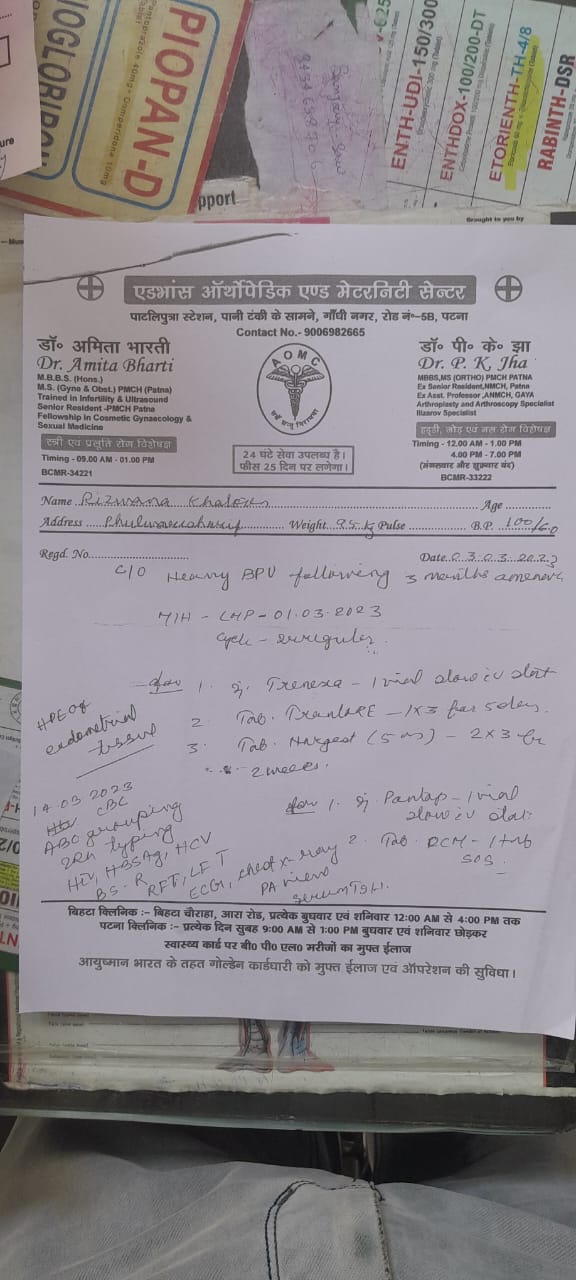 PIOPAN-D
Pantoprazole 40mg + Domperidone 10mg
ENTH-UDI-150/300
ENTHDOX-100/200-DT
ETORIENTH-TH-4/8
RABINTH-DSR
pport
Brought to you by
एडभांस ऑर्थोपेडिक एण्ड मेटरनिटी सेन्टर
पाटलिपुत्रा स्टेशन, पानी टंकी के सामने, गाँधी नगर, रोड नं०-5B, पटना
Contact No.- 9006982665
डॉ० अमिता भारती
Dr. Amita Bharti
M.B.B.S. (Hons.)
M.S. (Gyne & Obst.) PMCH (Patna)
Trained in Infertility & Ultrasound
Senior Resident -PMCH Patna
Fellowship in Cosmetic Gynaecology &
Sexual Medicine
स्त्री एवं प्रसुति रोग विशेषज्ञ
Timing - 09.00 AM - 01.00 PM
BCMR-34221
AOMC
सर्वे सन्तु निरामया
24 घंटे सेवा उपलब्ध है।
फीस 25 दिन पर लगेगा।
डॉ० पी० के० झा
Dr. P. K. Jha
MBBS,MS (ORTHO) PMCH PATNA
Ex Senior Resident,NMCH, Patna
Ex Asst. Professor ,ANMCH, GAYA
Arthroplasty and Arthroscopy Specialist
Ilizarov Specialist
हड्डी, जोड़ एवं नस रोग विशेषज्ञ
Timing - 12.00 AM - 1.00 PM
4.00 PM - 7.00 PM
(मंगलवार और शुक्रवार बंद)
BCMR-33222
Name Rizwana Khatoon Age
Address Phulwarisharif Weight 95 kg Pulse B.P. 100/60
Regd. No. Date 03.03.2023
C/O Heavy BPV following 3 months amenorr
M/H - LMP - 01.03.2023
Cycle - irregular
1. Inj. Trenexa - 1 vial slow iv stat
2. Tab. - 1x3 for 5 days.
3. Tab. (5 mg) - 2x3 for
2 weeks.
HPE of
endometrial
tissue
1. Inj Pantap - 1 vial
slow iv stat
2. Tab. DCM - 1 tab
SOS
14.03.2023
CBC
ABO grouping
Rh typing
HIV, HBSAg, HCV
BS-R
RFT, LFT
ECG, chest x-ray
PA view
Serum TSH
बिहटा क्लिनिक :– बिहटा चौराहा, आरा रोड, प्रत्येक बुधवार एवं शनिवार 12:00 AM से 4:00 PM तक
पटना क्लिनिक :– प्रत्येक दिन सुबह 9:00 AM से 1:00 PM बुधवार एवं शनिवार छोड़कर
स्वास्थ्य कार्ड पर बी० पी० एल० मरीजों का मुफ्त ईलाज
आयुष्मान भारत के तहत गोल्डेन कार्डधारी को मुफ्त ईलाज एवं ऑपरेशन की सुविधा।